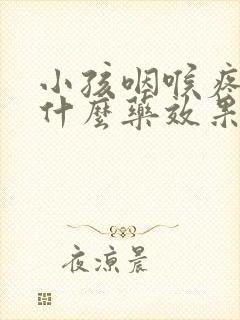 小孩咽喉疼
什麼藥效果
夜涼晨